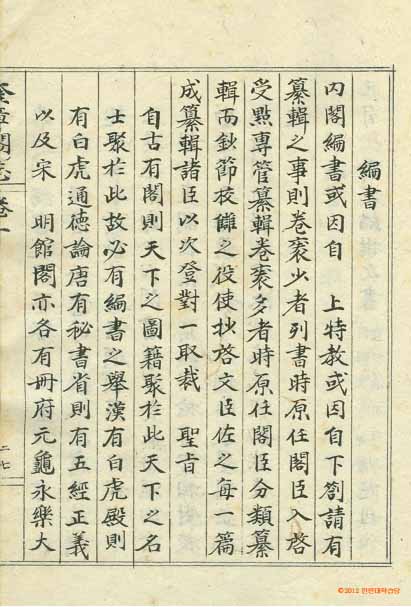 編書
內閣編書或因自 上特敎或因自下劄請有
纂輯之事則卷袠少者列書時原任閣臣入啓
受點專管纂輯卷袠多者時原任閣臣分類纂
輯而鈔節校讎之役使抄啓文臣佐之每一篇
成纂輯諸臣以次登對一一取裁 聖旨
自古有閣則天下之圖籍聚於此天下之名
士聚於此故必有編書之舉漢有白虎殿則
有白虎通德論唐有秘書省則有五經正義
以及宋 明館閣亦各有冊府元龜永樂大
奎章閣志 卷一
二七
©2012 한민대학습당